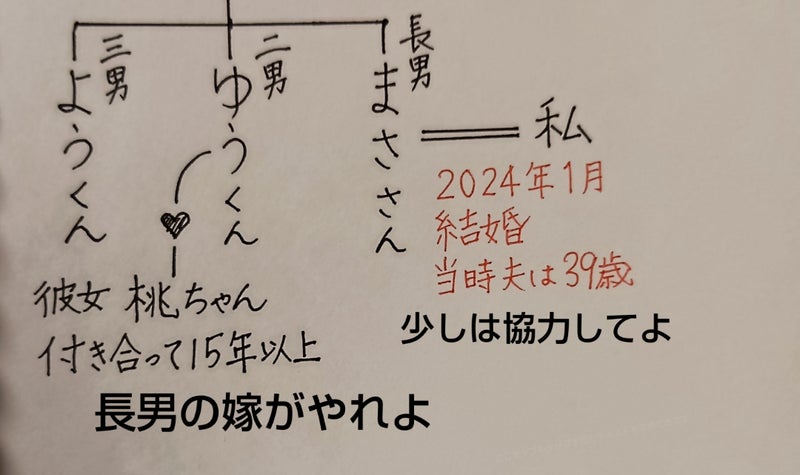 長男
まささん
二男
ゆうくん
三男
ようくん
私
2024年1月
結婚
当時夫は39歳
少しは協力してよ
彼女 桃ちゃん
付き合って15年以上
長男の嫁がやれよ